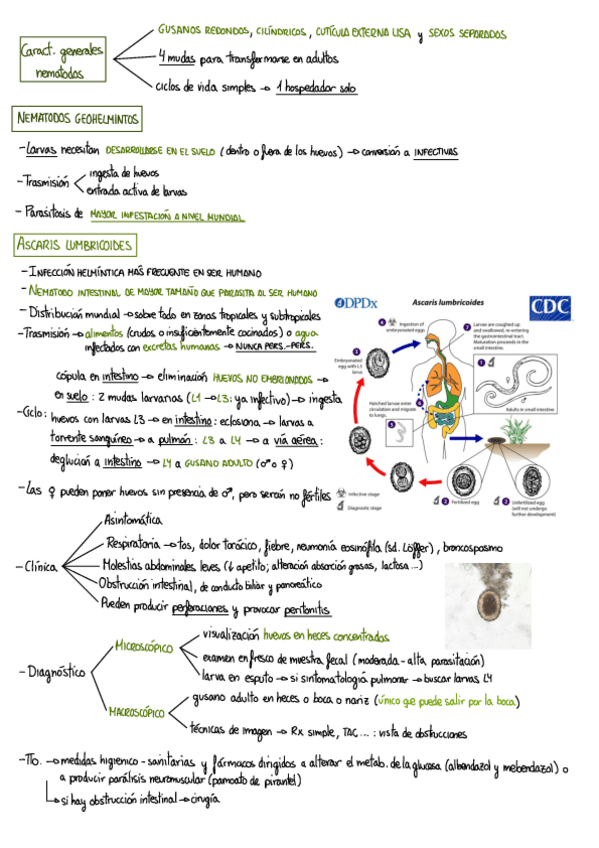 GUSANOS REDONDOS, CILÍNDRICOS, CUTÍCULA EXTERNA LISA y SEXOS SEPARADOS
Caract. generales
nematodos
4 mudas para transformarse en adultos
ciclos de vida simples → 1 hospedador solo
NEMATODOS GEOHELMINTOS
- Larvas necesitan DESARROLLARSE EN EL SUELO (dentro o fuera de los huevos) → conversión a INFECTIVAS
- Trasmisión
ingesta de huevos
entrada activa de larvas
- Parasitosis de MAYOR INFESTACIÓN A NIVEL MUNDIAL
ASCARIS LUMBRICOIDES
- INFECCIÓN HELMÍNTICA MÁS FRECUENTE EN SER HUMANO
- NEMATODO INTESTINAL DE MAYOR TAMAÑO QUE PARASITA AL SER HUMANO
- Distribución mundial → sobre todo en zonas tropicales y subtropicales
- Trasmisión → alimentos (crudos o insuficientemente cocinados) o agua
infectados con excretas humanas → NUNCA PERS.-PERS.
cópula en intestino → eliminación HUEVOS NO EMBRIONADOS →
en suelo : 2 mudas larvarias (L1 → L3: ya infectivo) → ingesta
- Ciclo: huevos con larvas L3 → en intestino: eclosiona → larvas a
torrente sanguíneo → a pulmón : L3 a L4 → a vía aérea :
deglución a intestino → L4 a GUSANO ADULTO (♂ o ♀)
- Las ♀ pueden poner huevos sin presencia de ♂, pero serán no fértiles
DPDx
Ascaris lumbricoides
CDC
4 Ingestion of
embryonated eggs
7 Larvae are coughed up
and swallowed, re-entering
the gastrointestinal tract.
Maturation proceeds in the
small intestine.
3
Embryonated
egg with L3
larva
1
Adults in small intestine
Hatched larvae enter
circulation and migrate
to lungs.
6
5
2 Fertilized egg
2 Unfertilized egg
(will not undergo
further development)
Infective stage
Diagnostic stage
- Clínica
Asintomática
Respiratoria → tos, dolor torácico, fiebre, neumonía eosinófila (sd. Löffler), broncospasmo
Molestias abdominales leves (↓ apetito; alteración absorción grasas, lactosa...)
Obstrucción intestinal, de conducto biliar y pancreático
Pueden producir perforaciones y provocar peritonitis
- Diagnóstico
MICROSCÓPICO
visualización huevos en heces concentradas
examen en fresco de muestra fecal (moderada - alta parasitación)
larva en esputo → si sintomatología pulmonar → buscar larvas L4
MACROSCÓPICO
gusano adulto en heces o boca o nariz (único que puede salir por la boca)
técnicas de imagen → Rx simple, TAC... : vista de obstrucciones
- Tto. → medidas higiénico - sanitarias y fármacos dirigidos a alterar el metab. de la glucosa (albendazol y mebendazol) o
a producir parálisis neuromuscular (pamoato de pirantel)
si hay obstrucción intestinal → cirugía